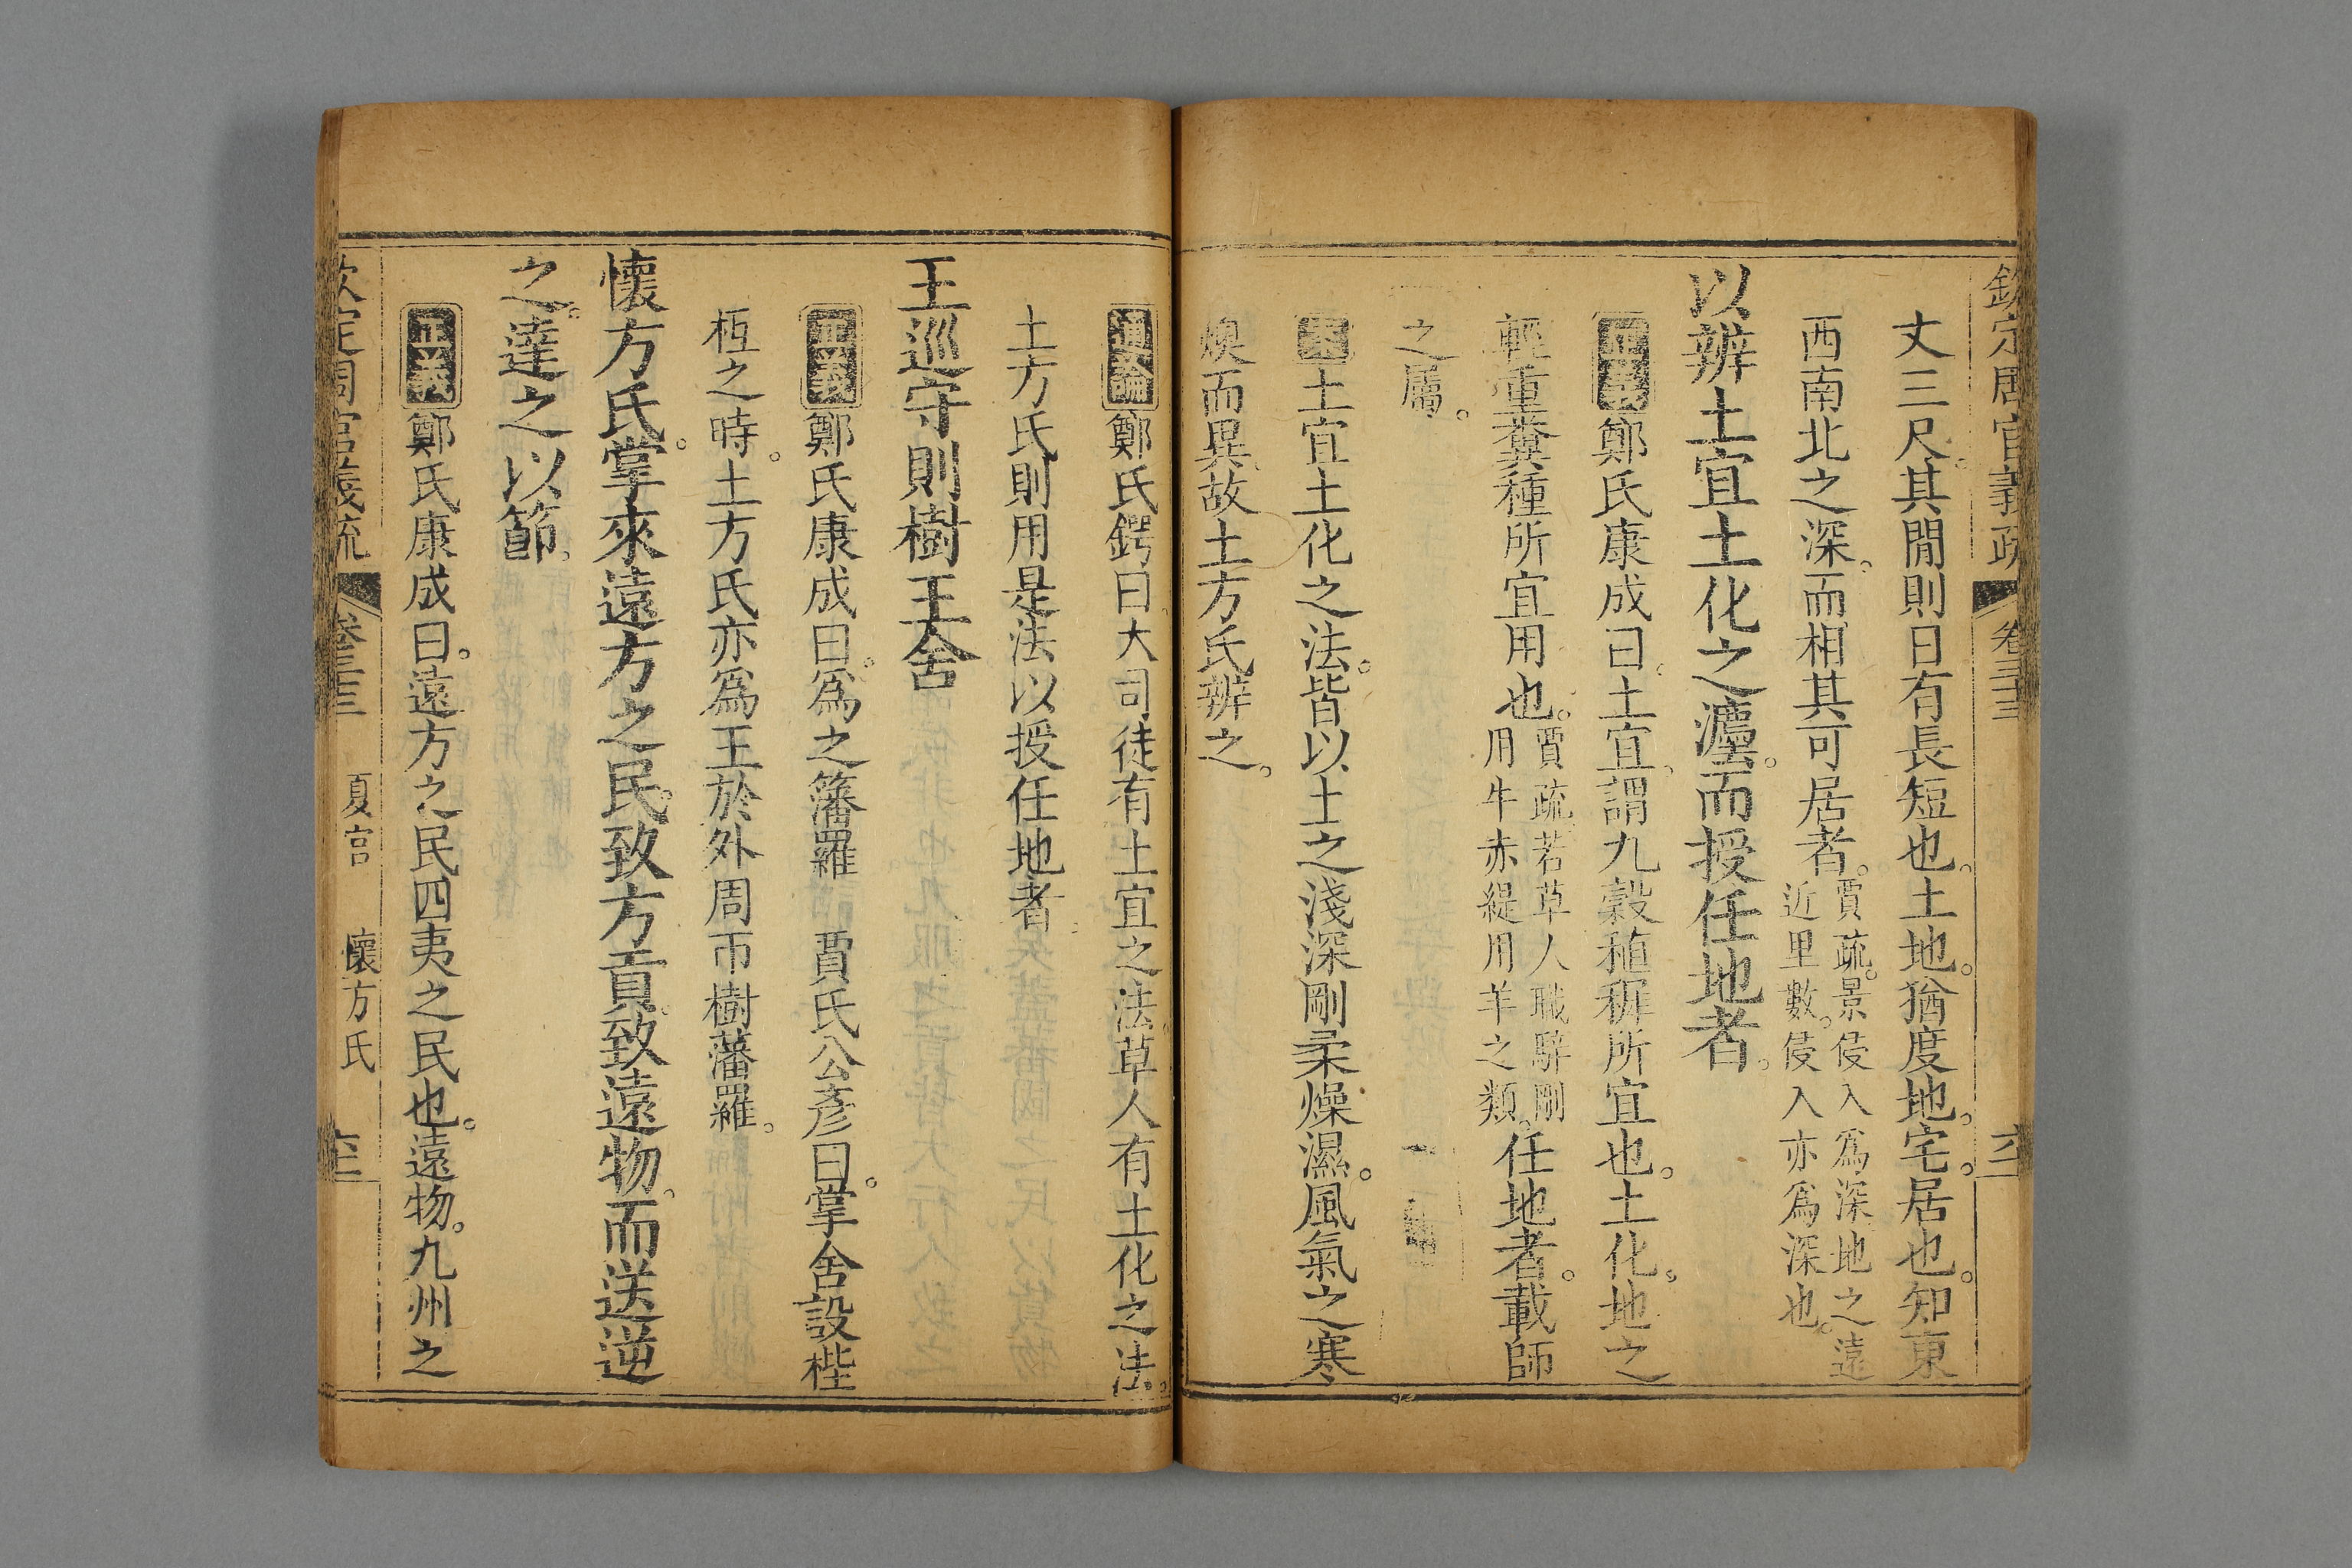 欽定周官義疏 卷三十三 六十一
丈三尺。其閒則日有長短也。土地。猶度地。宅。居也。知東
西南北之深。而相其可居者。賈疏。景侵入爲深地之遠近里數。侵入亦爲深也。
以辨土宜土化之灋。而授任地者。
正義鄭氏康成曰。土宜。謂九穀稙穉所宜也。土化。地之
輕重糞種所宜用也。賈疏。若草人職騂剛用牛赤緹用羊之類。任地者。載師
之屬。
案土宜土化之法。皆以土之淺深剛柔燥濕。風氣之寒
燠而異。故土方氏辨之。
通論鄭氏鍔曰大司徒有土宜之法。草人有土化之法。
土方氏則用是法以授任地者
王巡守則樹王舍
正義鄭氏康成曰。爲之籓羅 賈氏公彥曰。掌舍設梐
枑之時。土方氏亦爲王於外周帀樹藩羅。
懷方氏。掌來遠方之民。致方貢。致遠物。而送逆
之。達之以節。
正義鄭氏康成曰。遠方之民四夷之民也。遠物。九州之
欽定周官義疏 卷三十三 夏官 懷方氏 六十二